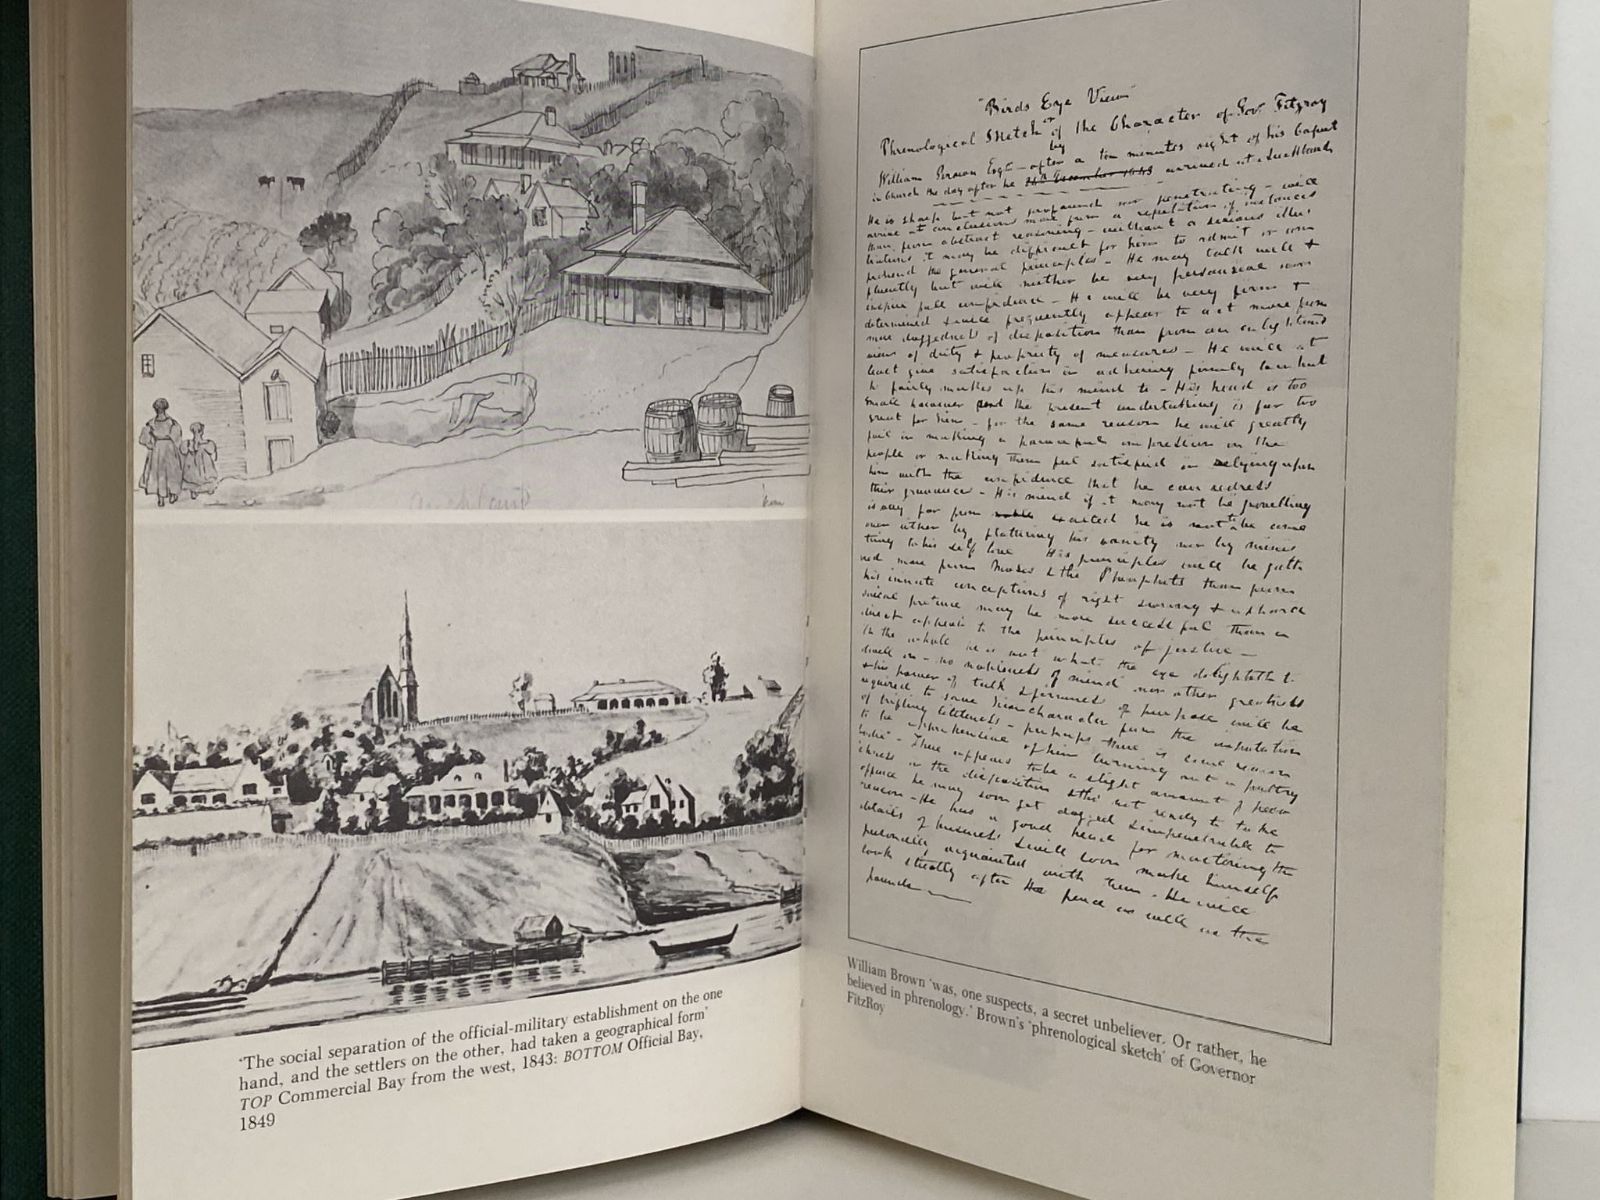 Auckland
'The social separation of the official-military establishment on the one
hand, and the settlers on the other, had taken a geographical form'
TOP Commercial Bay from the west, 1843: BOTTOM Official Bay,
1849
"Birds Eye View"
or
Phrenological Sketch of the Character of Gov Fitzroy
by
William Brown Esqr — after a ten minutes sight of his Caput
in Church the day after he arrived at Auckland
He is sharp but not profound nor penetrating — will
arrive at conclusions more from a repetition of instances
than from abstract reasoning — without a serious illus
tration it may be difficult for him to admit or com
prehend the general principles — He may talk well &
fluently but will neither be very persuasive nor
inspire full confidence — He will be very firm &
determined & will frequently appear to act more from
mere doggedness of disposition than from an enlightened
view of duty & propriety of measures — He will at
least give satisfaction in adhering firmly to what
he fairly makes up his mind to — His head is too
small however and the present undertaking is far too
great for him — for the same reason he will greatly
fail in making a powerful impression on the
people or making them feel satisfied in relying upon
him with the confidence that he can redress
their grievances — His mind if it may not be grovelling
is very far from noble exalted he is not to be come
over either by flattering his vanity nor by minis
tering to his self love His principles will be gath
ered more from Moses & the Prophets than from
his innate conceptions of right
may be more successful than a
direct appeal to the principles of justice —
On the whole he is not what the eye delighteth to
dwell on — no nobleness of mind nor other greatness
& his power of talk & firmness of purpose will be
required to save his character from the imputation
of trifling littleness — perhaps there is some reason
to be apprehensive of him turning out a paltry
bodie" — There appears to be a slight amount of
in the disposition & tho' not ready to take
offence he may soon get dogged & impenetrable to
reason — He has a good head for mastering the
details of business & will soon make himself
personally acquainted with them — He will
look steadily after the pence as well as the
pounds
William Brown 'was, one suspects, a secret unbeliever. Or rather, he
believed in phrenology.' Brown's 'phrenological sketch' of Governor
FitzRoy